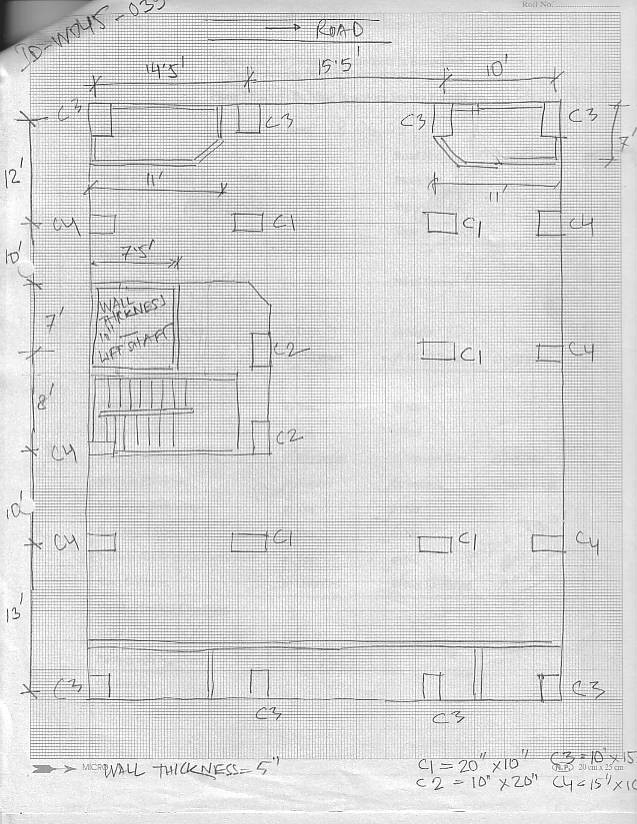 Roll No.
JD-W045-035
→ ROAD
14'5' 15'5' 10'
C3 C3 C3 C3
7'
12'
11' 11'
C4 C1 C1 C4
10'
7'5'
WALL
THICKNESS
10"
LIFT SHAFT
7'
C2 C1 C4
8'
C2
C4
10'
C4 C1 C1 C4
13'
C3 C3
C3 C3
WALL THICKNESS = 5"
C1 = 20" x 10" C3 = 10" x 15
C2 = 10" x 20" C4 = 15" x 10
20 cm x 25 cm